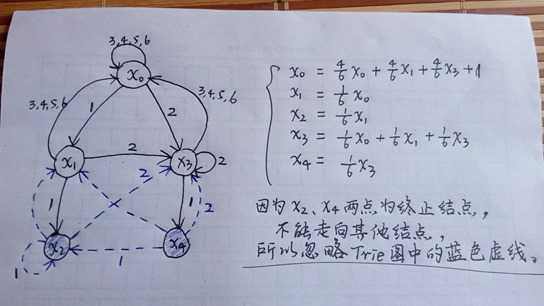 3,4,5,6
x₀
3,4,5,6
1
2
3,4,5,6
x₁
2
x₃
2
1
2
1
2
x₂
1
x₄
1
x₀ = 4/6 x₀ + 4/6 x₁ + 4/6 x₃ + 1
x₁ = 1/6 x₀
x₂ = 1/6 x₁
x₃ = 1/6 x₀ + 1/6 x₁ + 1/6 x₃
x₄ = 1/6 x₃
因为 x₂、x₄ 两点为终止结点，
不能走向其他结点，
所以忽略Trie图中的蓝色虚线。